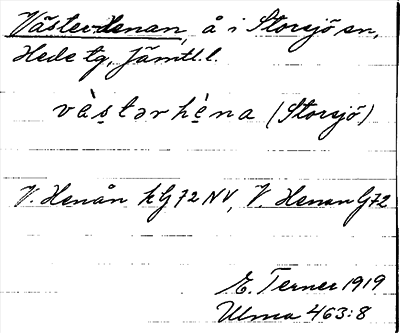 Västerhenan, å i Storsjö sn,
Hede tg, Jämtl. l.
và̀stərhè̩na (Storsjö)
V. Henån k G72 NV, V. Henan G72
E. Terner 1919
Ulma 463:8